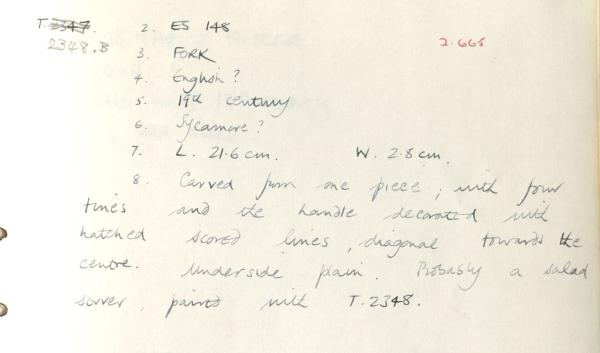 T. 2347. 2. ES 148
2348.B 2.665
3. FORK
4. English?
5. 19th century
6. Sycamore?
7. L. 21.6 cm. W. 2.8 cm.
8. Carved from one piece; with four
tines and the handle decorated with
hatched scored lines, diagonal towards the
centre. Underside plain. Probably a salad
server, paired with T.2348.